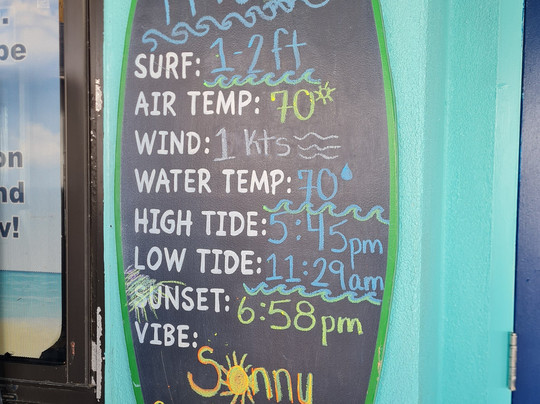 SURF: 1-2ft
AIR TEMP: 70
WIND: 1 Kts
WATER TEMP: 70
HIGH TIDE: 5:45pm
LOW TIDE: 11:29am
SUNSET: 6:58pm
VIBE:
Sonny
on
nd
w!